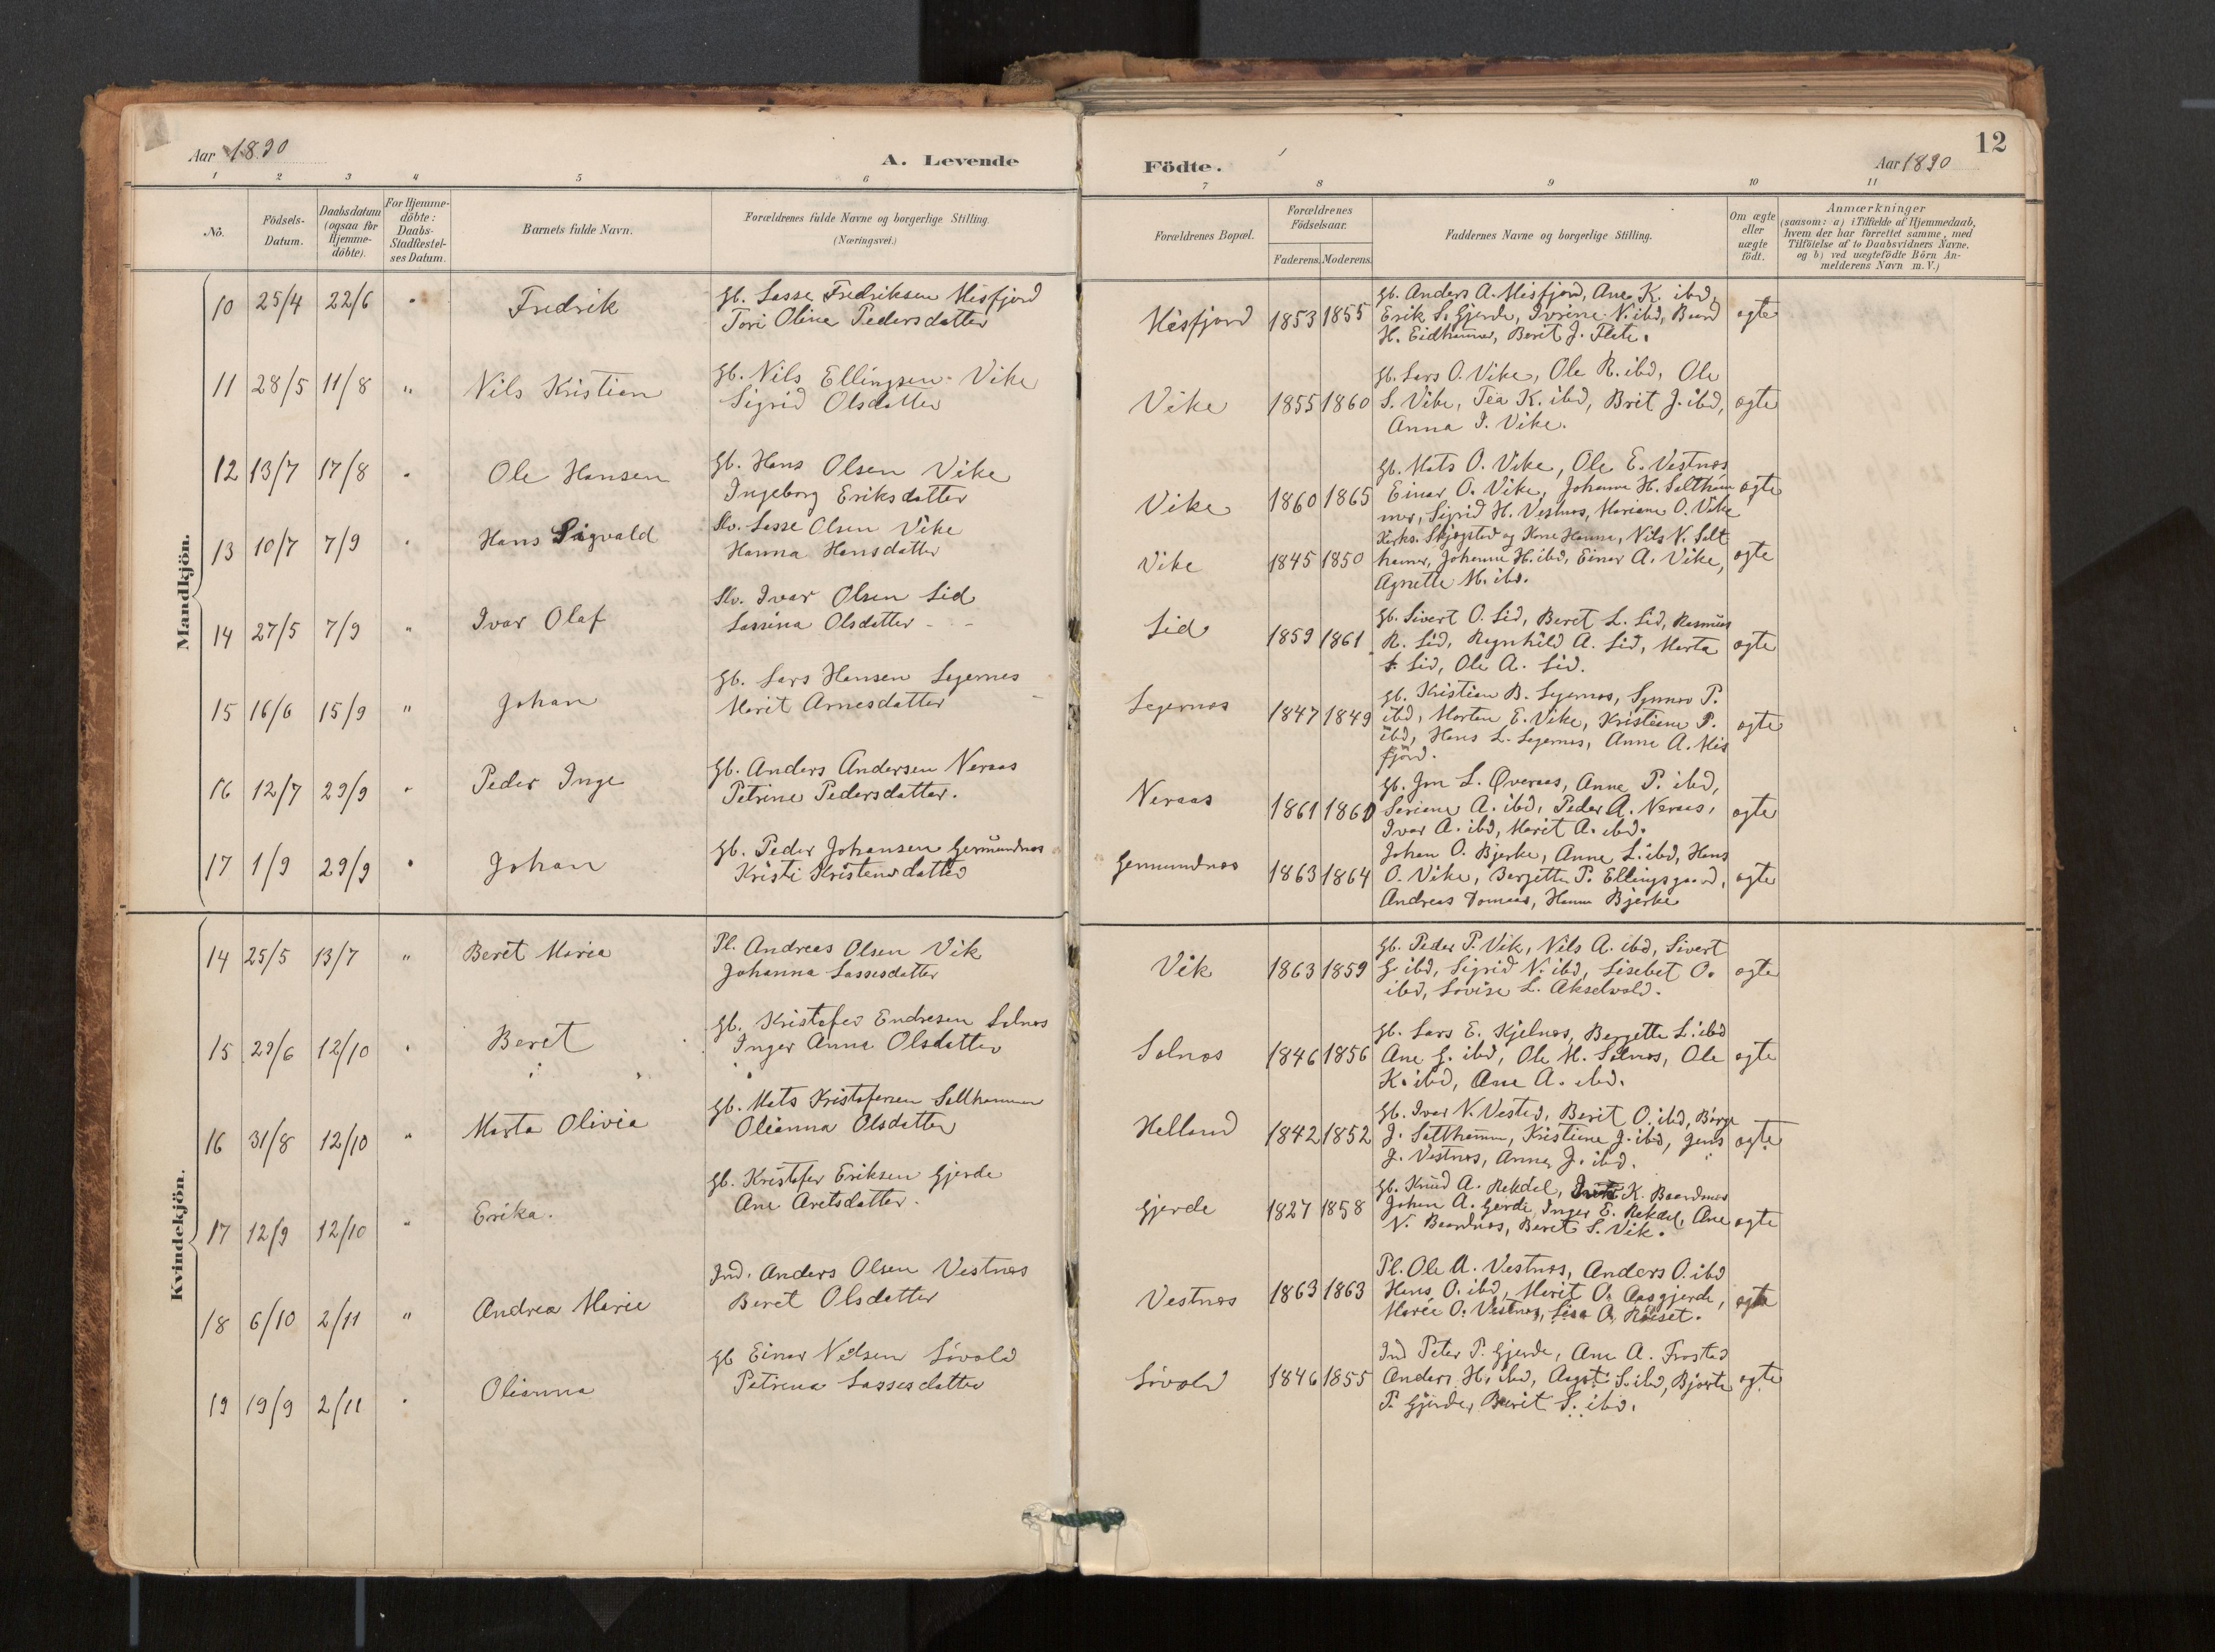 Aar 1890
A. Levende
1 2 3 4 5 6
No.
Födsels-
Datum.
Daabsdatum
(ogsaa for
Hjemme-
döbte).
For Hjemme-
döbte:
Daabs-
Stadfæstel-
ses Datum.
Barnets fulde Navn.
Forældrenes fulde Navne og borgerlige Stilling.
(Næringsvei.)
Mandkjön.
10 25/4 22/6 " Fredrik
Gb. Lasse Fredriksen Misfjord
Tori Oline Pedersdatter
11 28/5 11/8 " Nils Kristian
Gb. Nils Ellingsen Vike
Sigrid Olsdatter
12 13/7 17/8 " Ole Hansen
Gb. Hans Olsen Vike
Ingeborg Eriksdatter
13 10/7 7/9 " Hans Sigvald
Slv. Lasse Olsen Vike
Hanna Hansdatter
14 27/5 7/9 " Ivar Olaf
Slv. Ivar Olsen Lid
Lassina Olsdatter
15 16/6 15/9 " Johan
Gb. Lars Hansen Legernes
Marit Arnesdatter
16 12/7 29/9 " Peder Inge
Gb. Anders Andersen Neraas
Petrine Pedersdatter.
17 1/9 29/9 " Johan
Gb. Peder Johansen Gjermundnæs
Kristi Kristensdatter
Kvindekjön.
14 25/5 13/7 " Beret Maria
Pl. Andreas Olsen Vik
Johanna Lassesdatter
15 29/6 12/10 " Beret
Gb. Kristofer Endresen Solnæs
Inger Anna Olsdatter
16 31/8 12/10 " Marta Olivia
Gb. Mats Kristofersen Salthammer
Olianna Olsdatter
17 12/9 12/10 " Erika.
Gb. Kristofer Eriksen Gjerde
Ane Aretsdatter.
18 6/10 2/11 " Andrea Marie
Ind. Anders Olsen Vestnæs
Beret Olsdatter
19 19/9 2/11 " Olianna
Gb Einar Nilsen Sivold
Petrina Lassesdatter
12
Födte.
Aar 1890
7 8 9 10 11
Forældrenes Bopæl.
Forældrenes
Födselsaar.
Faderens. Moderens.
Faddernes Navne og borgerlige Stilling.
Om ægte
eller
uægte
födt.
Anmærkninger
(saasom: a) i Tilfælde af Hjemmedaab,
hvem der har forrettet samme, med
Tilföielse af to Daabsvidners Navne,
og b) ved uægtefödte Börn An-
melderens Navn m. V.)
Misfjord 1853 1855 ægte
Gb. Anders A. Misfjord, Ane K. ibd,
Erik L. Gjerde, N. ibd, Baard
H. Eidhammer, Berit J. Flate.
Vike 1855 1860 ægte
Gb. Lars O. Vike, Ole R. ibd, Ole
S. Vike, Tea K. ibd, Brit J. ibd,
Anna I. Vike.
Vike 1860 1865 ægte
Gb. Mats O. Vike, Ole E. Vestnæs
Einar O. Vike, Johanne H. Saltham
mer, Sigrid H. Vestnæs, Mariane O. Vike
Vike 1845 1850 ægte
Kirks. Skjøgstad og Kone Hanna, Nils N. Salt
hamer, Johanne H. ibd, Einar A. Vike,
Agnette M. ibd.
Lid 1859 1861 ægte
Gb. Sivert O. Lid, Beret L. Lid, Rasmus
R. Lid, Ragnhild A. Lid, Marta
Lid, Ole A. Lid.
Legernæs 1847 1849 ægte
Gb. Kristian B. Legernæs, Synnøv P.
ibd, Morten E. Vike, Kristiane P.
ibd, Hans L. Legernæs, Anne A. Mis
fjord.
Neraas 1861 1860 ægte
Gb. Jon L. Øveraas, Anne P. ibd,
Seriane A. ibd, Peder A. Neraas,
Ivar A. ibd, Marit A. ibd.
Gjermundnæs 1863 1864 ægte
Johan O. Bjerke, Anne L. ibd, Hans
O. Vike, Bergitte P. Ellingsgaard,
Andreas Tomaas, Hanna Bjerke
Vik 1863 1859 ægte
Gb. Peder P. Vik, Nils A. ibd, Sivert
G ibd, Sigrid N. ibd, Lisebet O.
ibd, Lovise L. Akselvold.
Solnæs 1846 1856 ægte
Gb. Lars E. Kjelnæs, Bergette L. ibd
Ane G. ibd, Ole M. Solnæs, Ole
K. ibd, Ane A. ibd.
Helland 1842 1852 ægte
Gb. Ivar N. Vestad, Berit O. ibd, Børge
J. Salthammer, Kristine J. ibd, Jens
J. Vestnæs, Anna J. ibd.
Gjerde 1827 1858 ægte
Gb. Knud A. Rekdal, K. Baardnæs
Johan A. Gjerde, Inger E. Rekdal, Ane
N. Baardnæs, Beret S. Vik.
Vestnæs 1863 1863 ægte
Pl. Ole A. Vestnæs, Anders O. ibd
Hans O. ibd, Marit O. Aasgjerde,
Marie O. Vestnæs, Lisa O. Røiset.
Sivold 1846 1855 ægte
Ind Peter P. Gjerde, Ane A. Frostad
Anders H. ibd, Aagot S. ibd, Bjerte
P. Gjerde, Berit S. ibd.